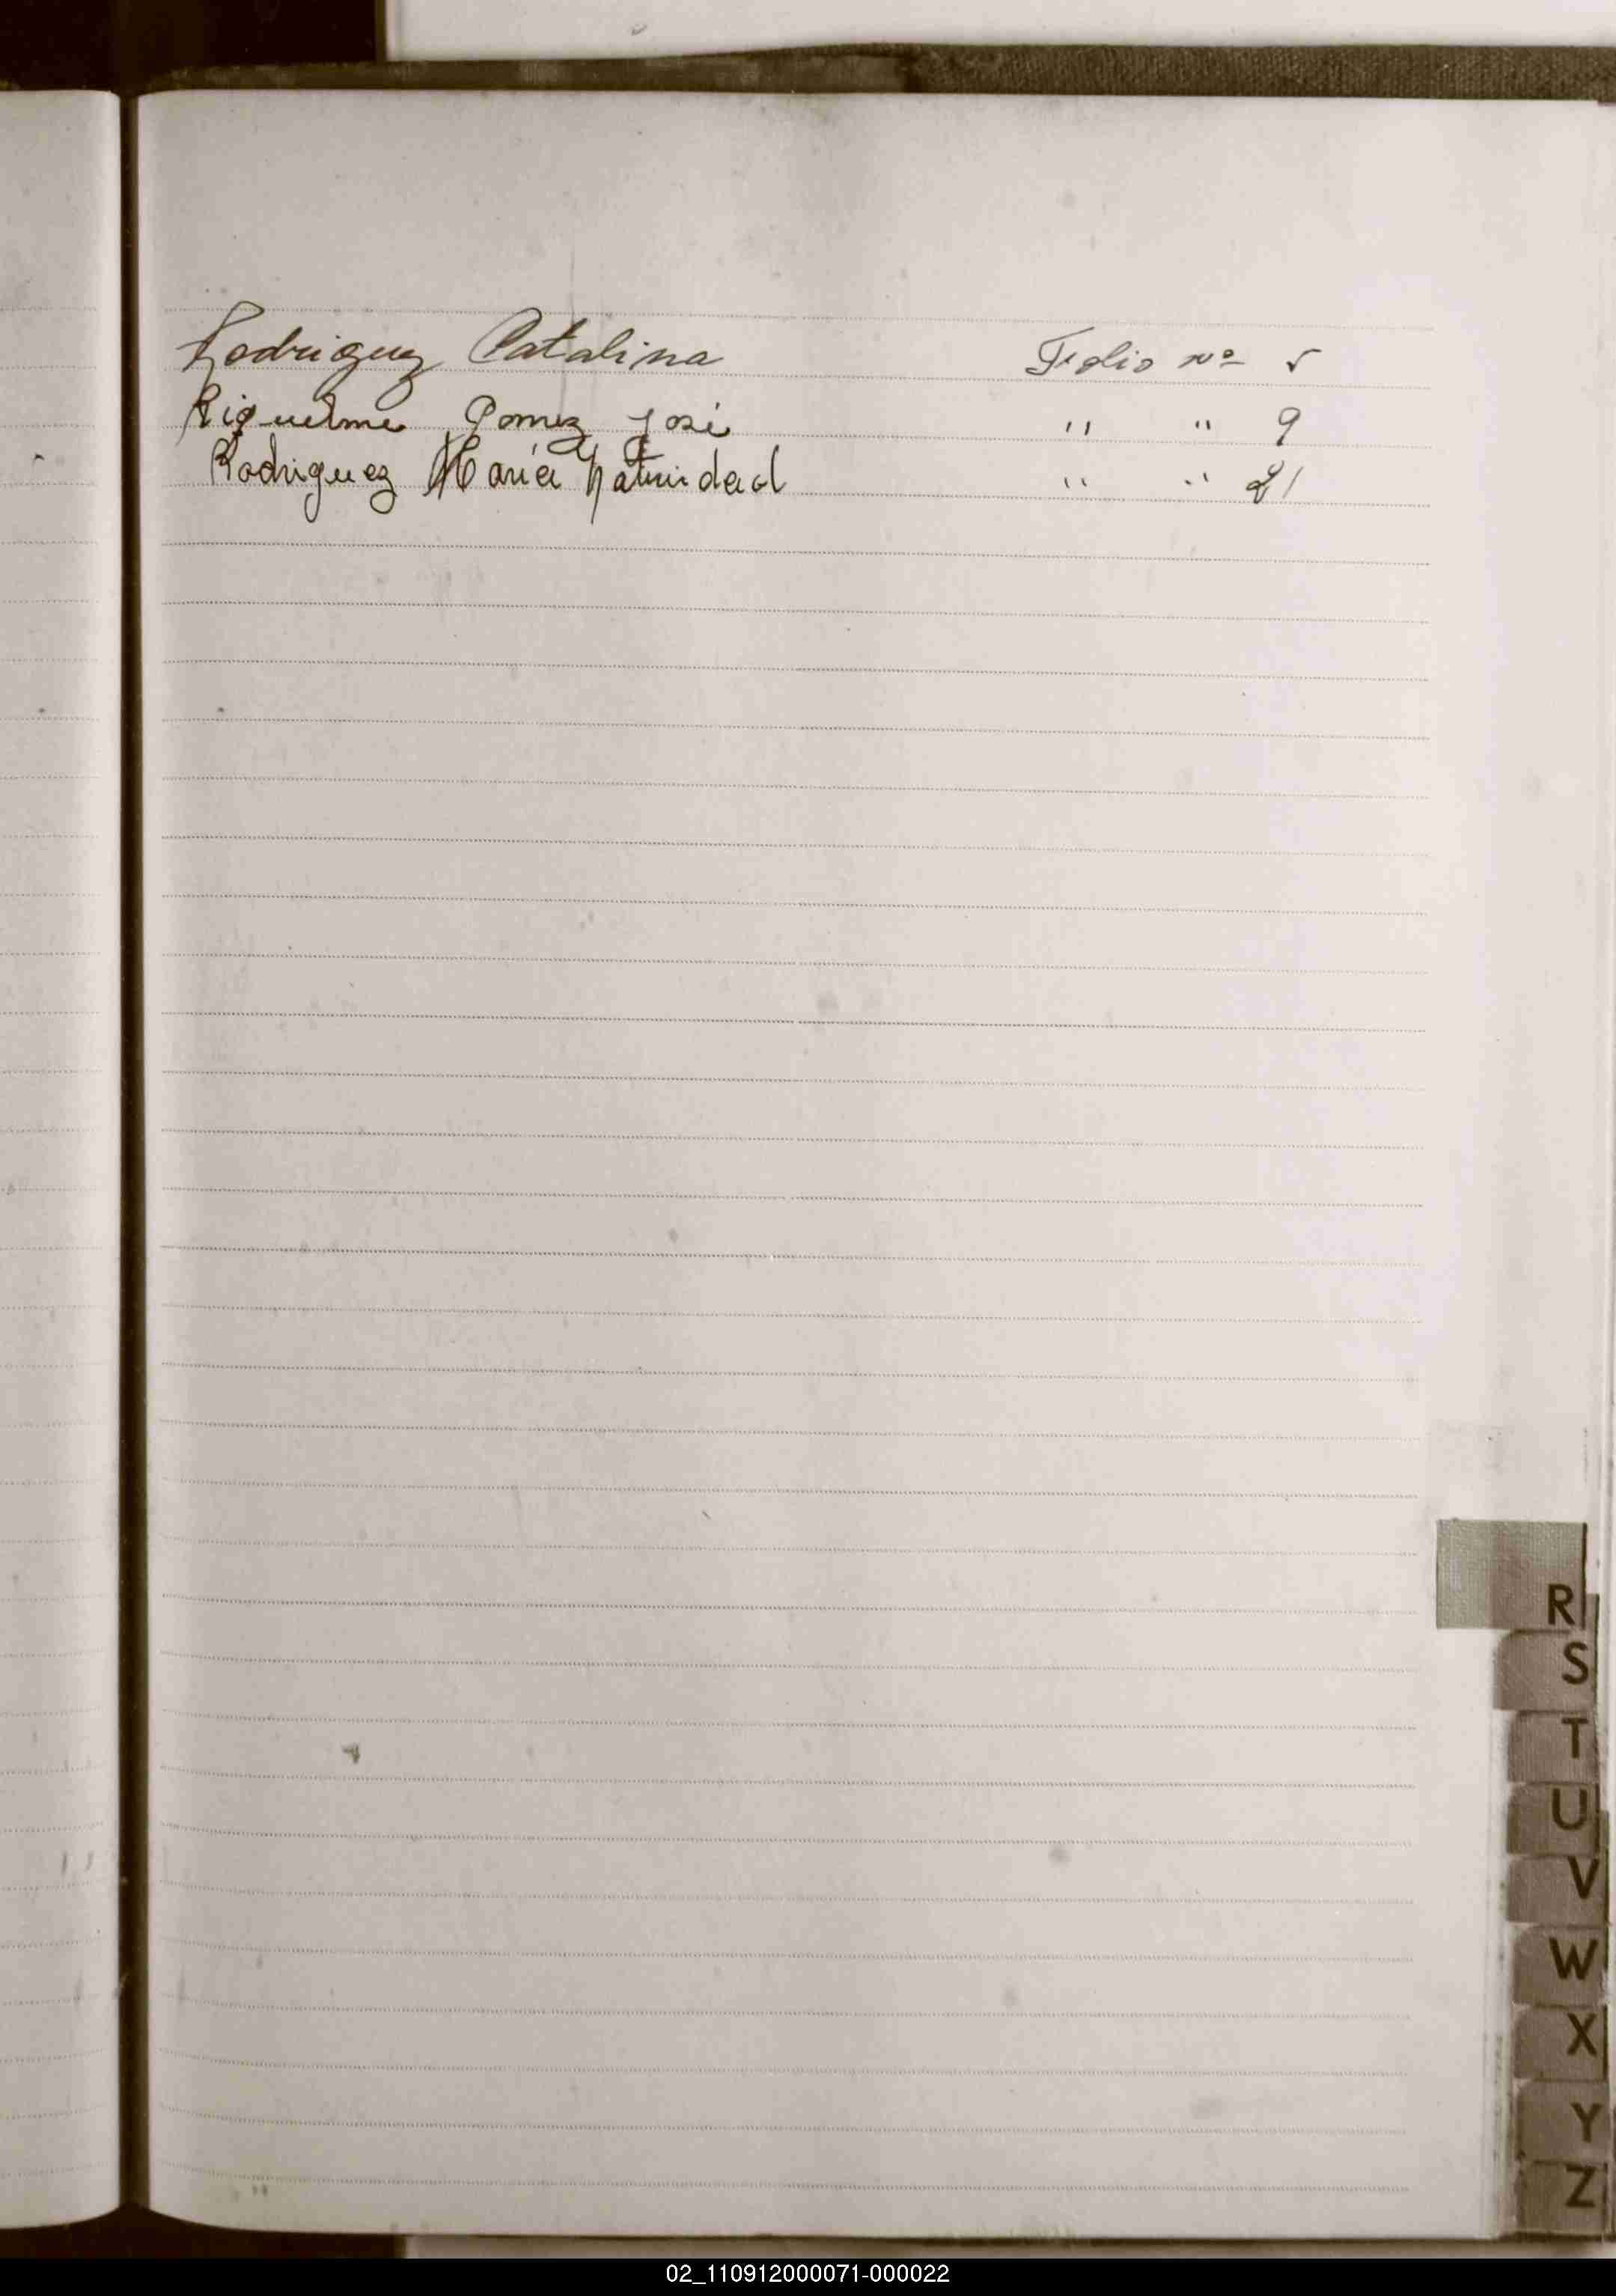 Rodriguez Catalina Folio nº 5
Riquelme Gomez José " " 9
Rodriguez Maria Natividad " " 21
R
S
T
U
V
W
X
Y
Z
02_110912000071-000022